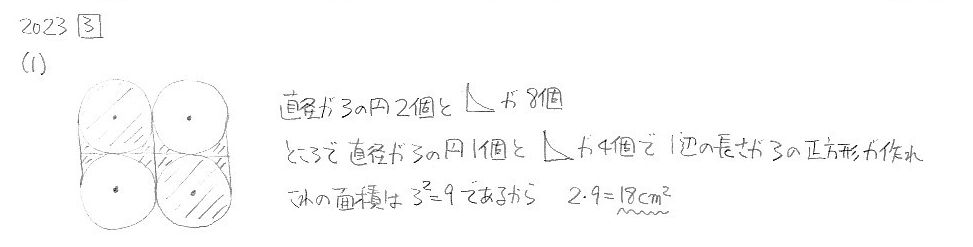 2023 3
(1)
直径が3の円2個と が8個
ところで直径が3の円1個と が4個で1辺の長さが3の正方形が作れ
これの面積は3²=9であるから 2・9=18cm²